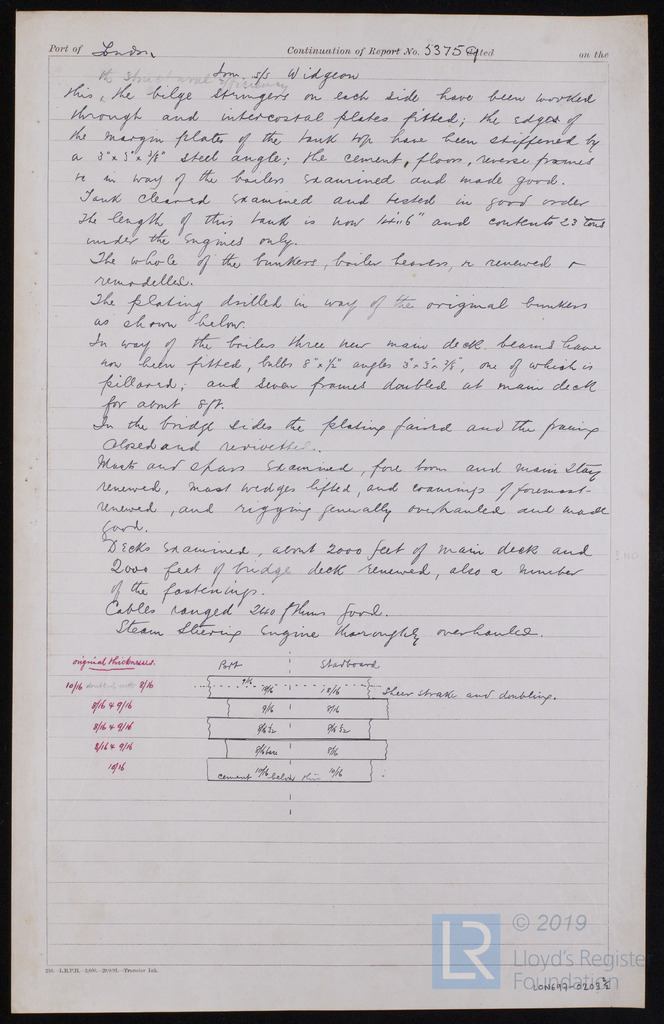 Port of London Continuation of Report No. 53759 dated on the
Iron s/s Widgeon
the structural efficiency
this, the bilge stringers on each side have been worked
through and intercostal plates fitted; the edges of
the margin plates of the tank top have been stiffened by
a 3" x 3" x 3/8" steel angle; the cement, floors, reverse frames
&c in way of the boilers examined and made good.
Tank cleared examined and tested in good order
The length of this tank is now 14'.6" and contents 23 tons
under the Engines only.
The whole of the bunkers, boiler bearers, &c renewed &
remodelled.
The plating drilled in way of the original bunkers
as shown below.
In way of the boilers three new main deck beams have
now been fitted, bulbs 8" x 1/2" angles 3" x 3" x 3/8", one of which is
pillared; and seven frames doubled at main deck
for about 8ft.
In the bridge sides the plating faired and the framing
closed and rerivetted.
Masts and spars examined, fore boom and main stay
renewed, mast wedges lifted, and coamings of foremast
renewed, and rigging generally overhauled and made
good.
Decks examined, about 2000 feet of main deck and
2000 feet of bridge deck renewed, also a number
of the fastenings.
Cables ranged 240 fthms good.
Steam Steering Engine thoroughly overhauled.
original thicknesses. Port Starboard
10/16 doubled with 8/16 9/16 10/16 10/16 Sheer strake and doubling.
8/16 & 9/16 9/16 8/16
8/16 & 9/16 8/16 1/2 8/16 1/2
8/16 & 9/16 9/16 bare 8/16
10/16 cement 10/16 below this 10/16
© 2019
LR Lloyd's Register
Foundation
LON697-0203